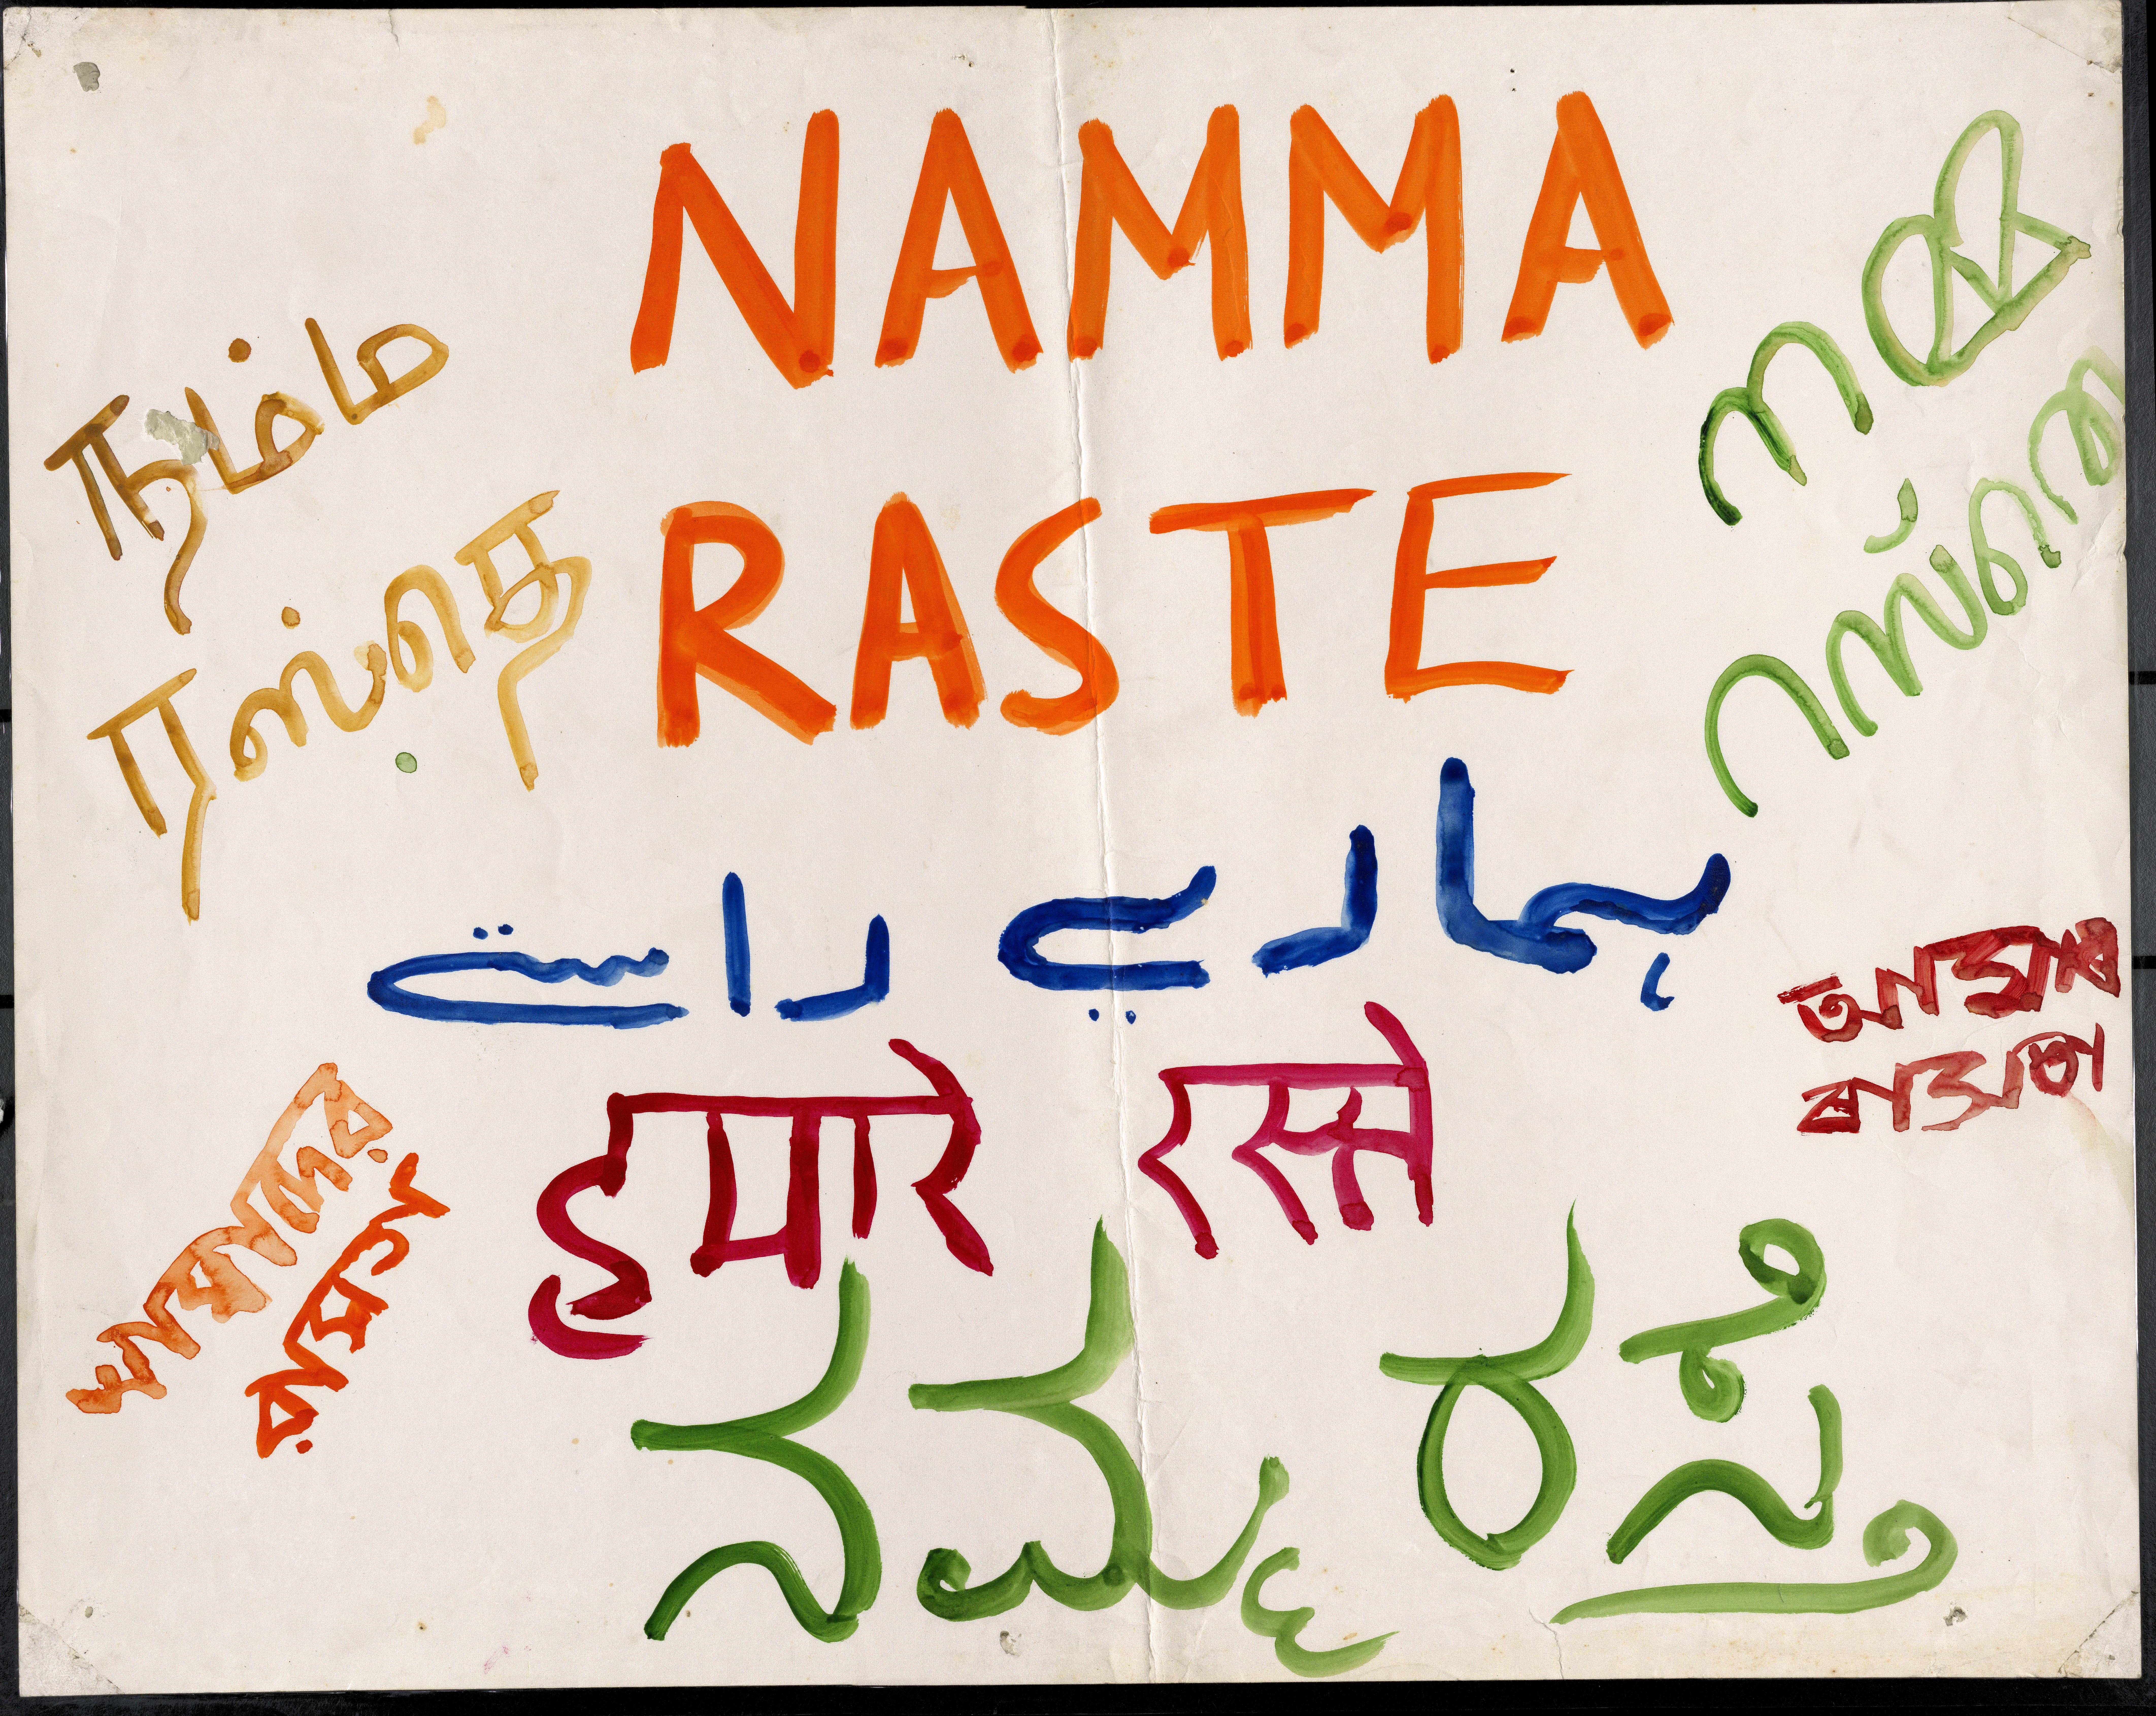 NAMMA
RASTE
நம்ம
ரஸ்தெ
നമ്മ
റസ്തെ
ہمارے راستے
हमारे रस्ते
ನಮ್ಮ ರಸ್ತೆ